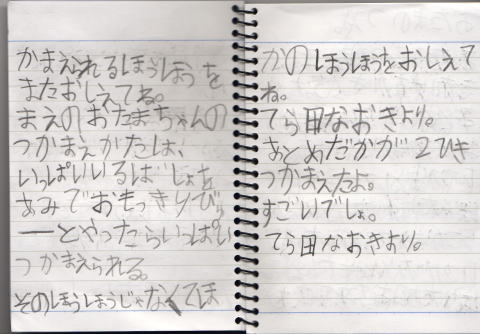 かまえられるほうほうを
またおしえてね。
まえのおたまちゃんの
つかまえかたは、
いっぱいいるばしょを
あみでおもっきりびゅ
ーーとやったらいっぱい
つかまえられる。
そのほうほうじゃなくてほ
かのほうほうをおしえて
ね。
てら田なおきより。
あとめだかが2ひき
つかまえたよ。
すごいでしょ。
てら田なおきより。